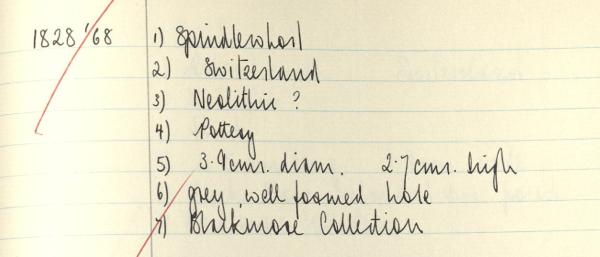 1828 '68 1) Spindlewhorl
2) Switzerland
3) Neolithic ?
4) Pottery
5) 3.9 cms. diam. 2.7 cms. high
6) grey, well formed hole
7) Blackmore Collection